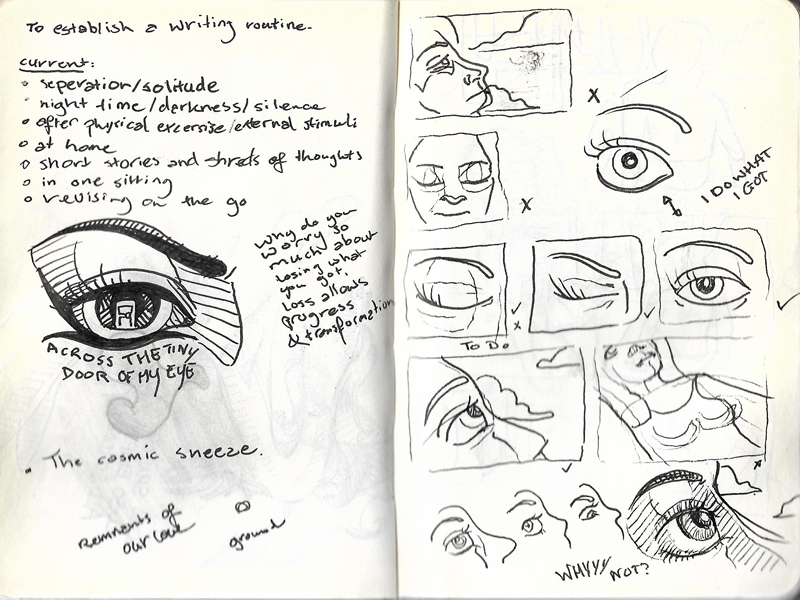 To establish a writing routine.
current:
seperation/solitude
night time/darkness/silence
after physical excersise/external stimuli
at home
short stories and shreds of thoughts
in one sitting
revising on the go
why do you
worry so
much about
losing what
you got.
Loss allows
progress
& transformation
ACROSS THE TINY
DOOR OF MY EYE
The cosmic sneeze.
Remnants of
our love
ground
X
I DO WHAT
I GOT
X
X
To Do
X
WHYYY NOT?